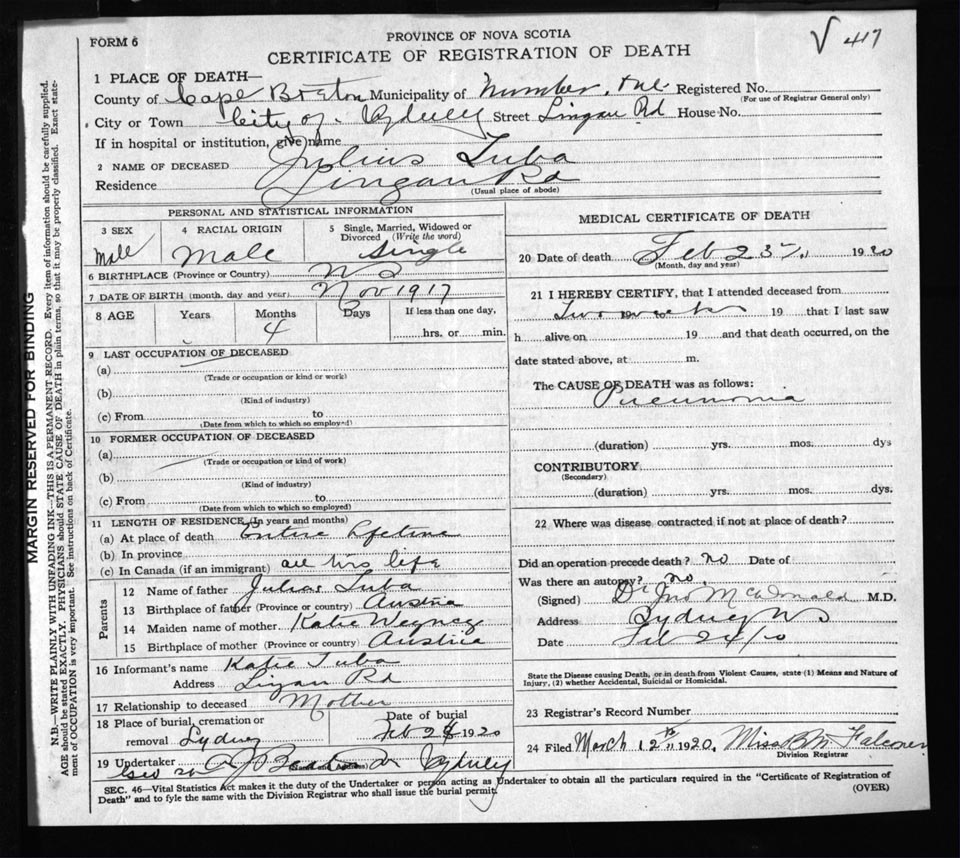 FORM 6
PROVINCE OF NOVA SCOTIA
√ 417
CERTIFICATE OF REGISTRATION OF DEATH
1 PLACE OF DEATH—
County of Cape Breton Municipality of Number, One Registered No.
(For use of Registrar General only)
City or Town City of Sydney Street Lingan Rd House No.
If in hospital or institution, give name
2 NAME OF DECEASED Julius Tuba
Residence Lingan Rd
(Usual place of abode)
PERSONAL AND STATISTICAL INFORMATION
3 SEX Male
4 RACIAL ORIGIN Male
5 Single, Married, Widowed or Divorced (Write the word) Single
6 BIRTHPLACE (Province or Country) N S
7 DATE OF BIRTH (month, day and year) Nov 1917
8 AGE Years Months 4 Days If less than one day,
hrs. or min.
9 LAST OCCUPATION OF DECEASED
(a)
(Trade or occupation or kind or work)
(b)
(Kind of industry)
(c) From to
(Date from which to which so employed)
10 FORMER OCCUPATION OF DECEASED
(a)
(Trade or occupation or kind of work)
(b)
(Kind of industry)
(c) From to
(Date from which to which so employed)
11 LENGTH OF RESIDENCE (In years and months)
(a) At place of death Entire Lifetime
(b) In province
(c) In Canada (if an immigrant) all his life
Parents
12 Name of father Julias Tuba
13 Birthplace of father (Province or country) Austria
14 Maiden name of mother Katie
15 Birthplace of mother (Province or country) Austria
16 Informant's name Katie Tuba
Address Lingan Rd
17 Relationship to deceased Mother
18 Place of burial, cremation or removal Sydney
Date of burial Feb 24 1920
19 Undertaker Sydney
MEDICAL CERTIFICATE OF DEATH
20 Date of death Feb 23 1920
(Month, day and year)
21 I HEREBY CERTIFY, that I attended deceased from
Two weeks 19 that I last saw
h alive on 19 and that death occurred, on the
date stated above, at m.
The CAUSE OF DEATH was as follows:
Pneumonia
(duration) yrs. mos. dys
CONTRIBUTORY
(Secondary)
(duration) yrs. mos. dys.
22 Where was disease contracted if not at place of death?
Did an operation precede death? No Date of
Was there an autopsy? no.
(Signed) Dr Jno McDonald M.D.
Address Sydney N S
Date Feb 24/20
State the Disease causing Death, or in death from Violent Causes, state (1) Means and Nature of
Injury, (2) whether Accidental, Suicidal or Homicidal.
23 Registrar's Record Number
24 Filed March 12th 1920, Miss B M Falconer
Division Registrar
SEC. 46—Vital Statistics Act makes it the duty of the Undertaker or person acting as Undertaker to obtain all the particulars required in the "Certificate of Registration of
Death" and to fyle the same with the Division Registrar who shall issue the burial permit.
(OVER)
MARGIN RESERVED FOR BINDING
N.B.—WRITE PLAINLY WITH UNFADING INK—THIS IS A PERMANENT RECORD. Every item of information should be carefully supplied.
AGE should be stated EXACTLY. PHYSICIANS should STATE CAUSE OF DEATH in plain terms, so that it may be properly classified. Exact state-
ment of OCCUPATION is very important. See instructions on back of Certificate.